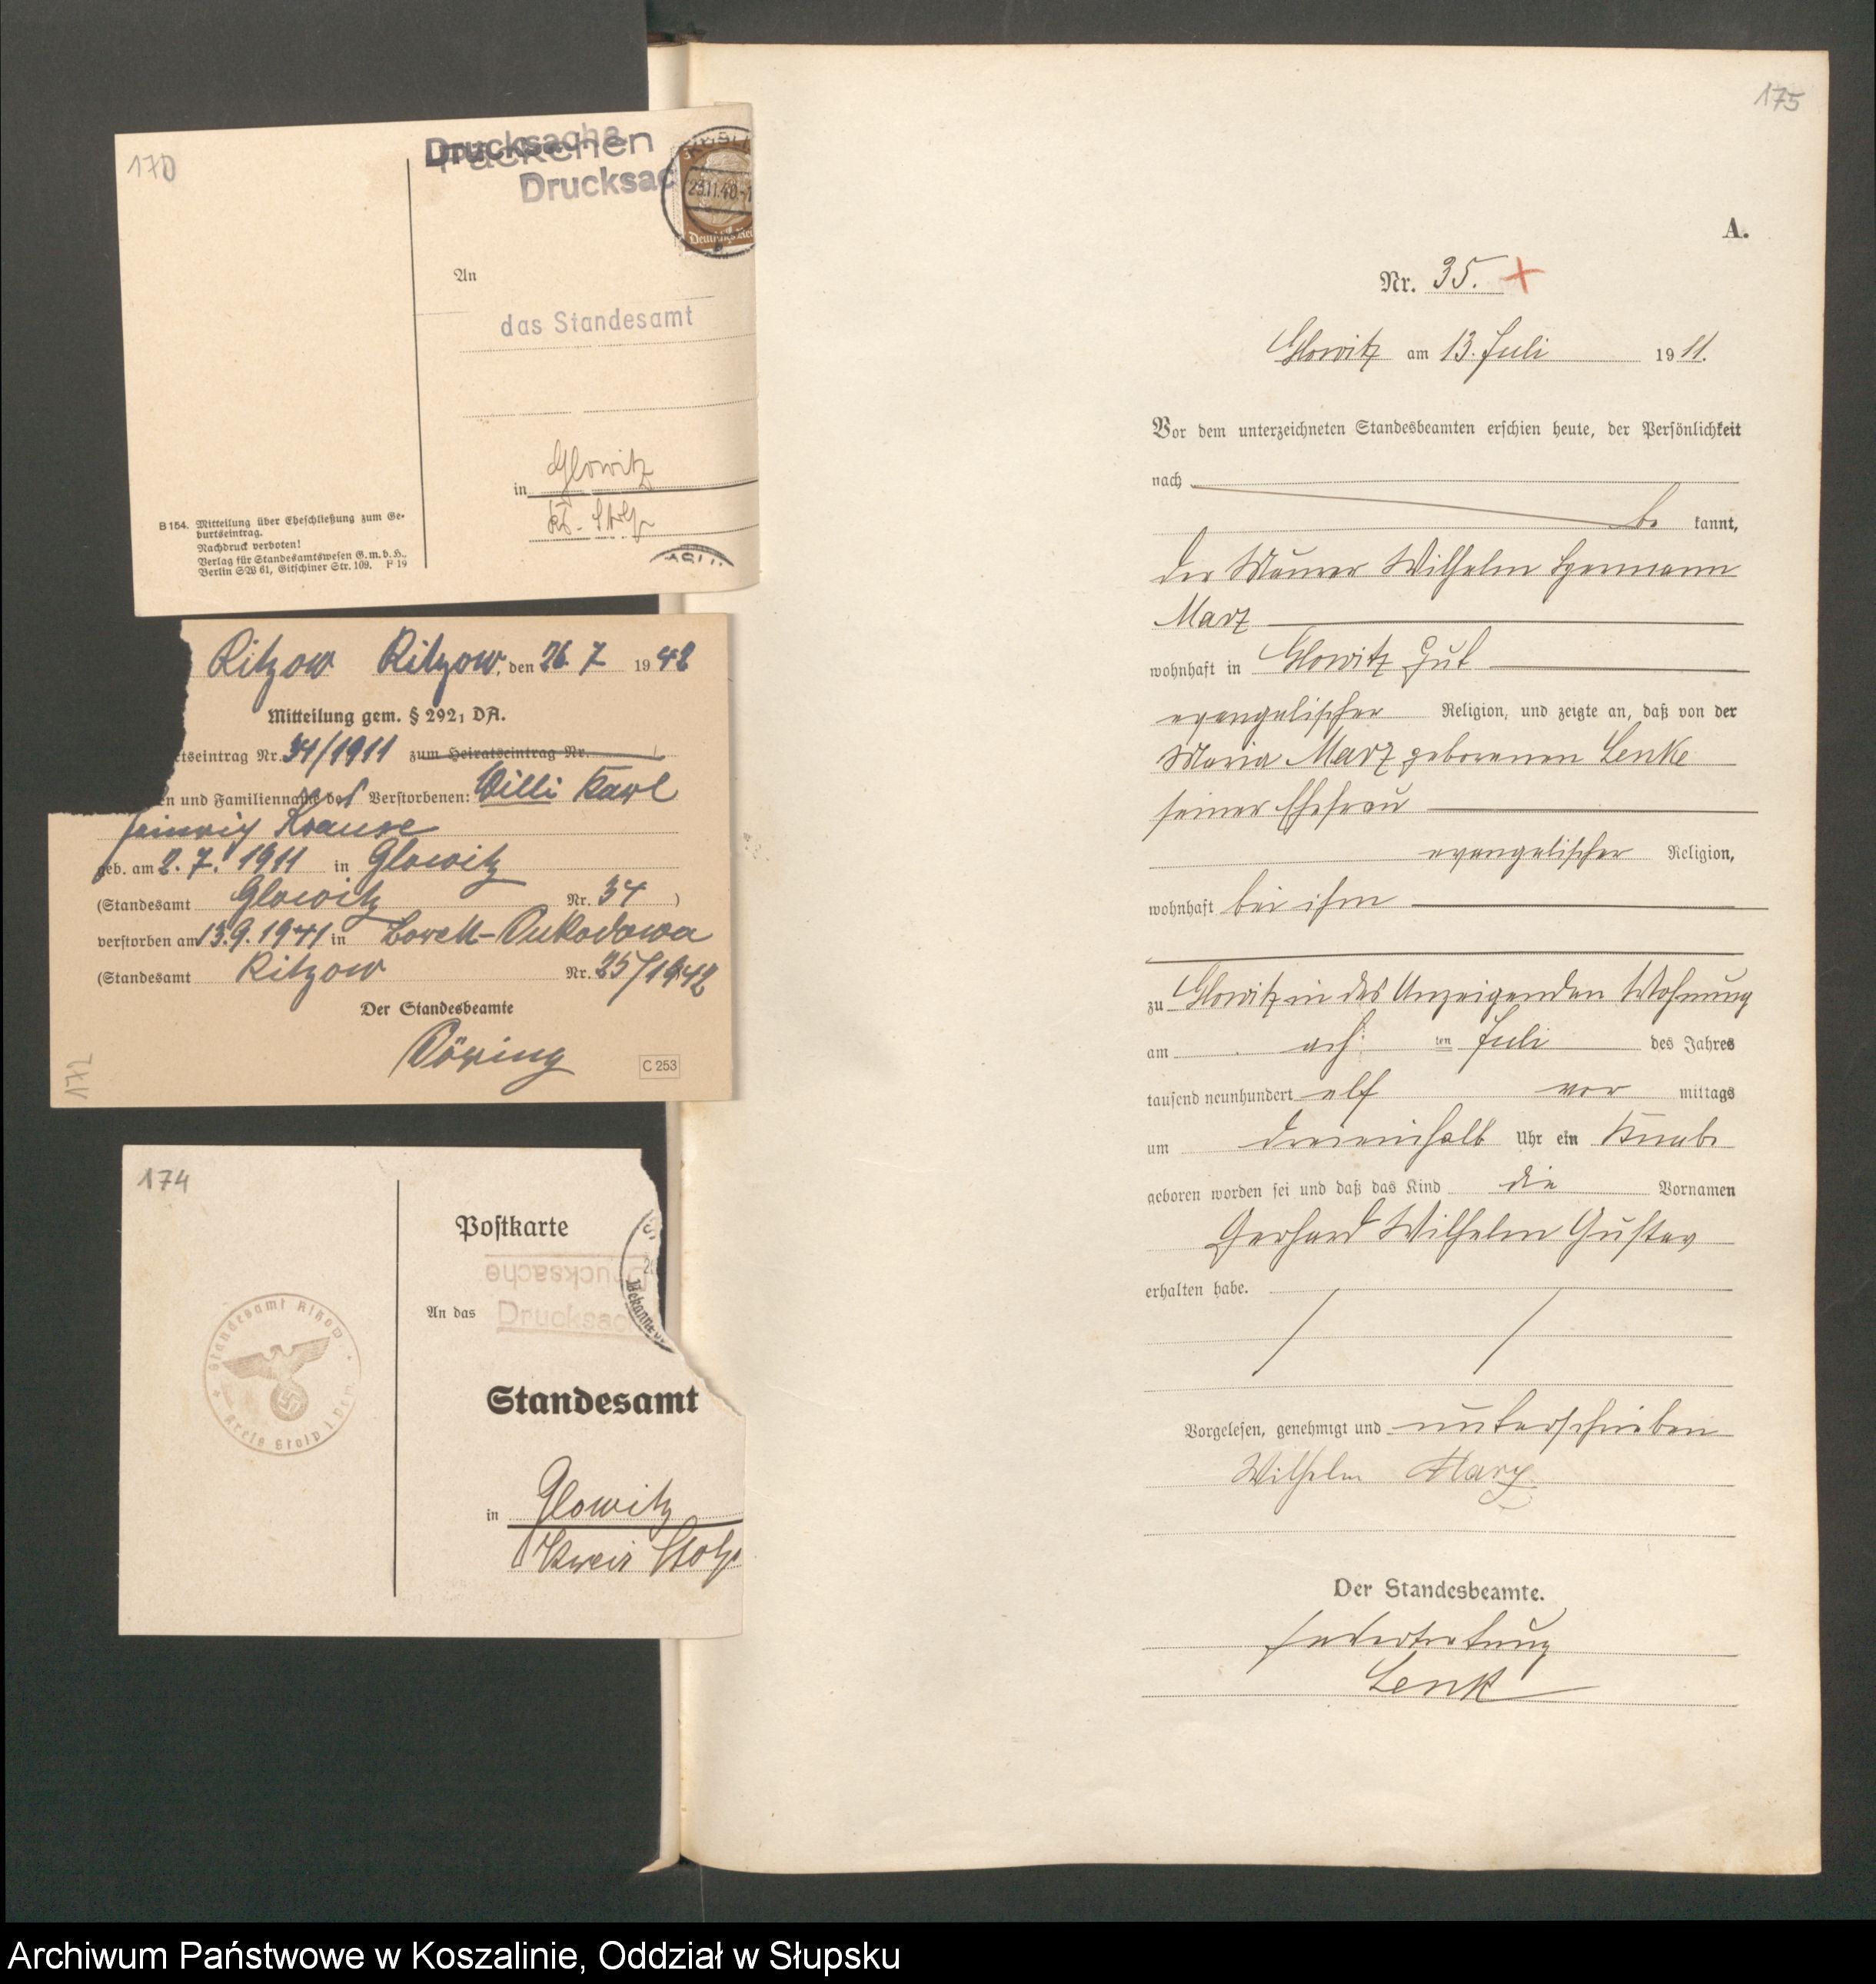 170
Drucksache
Päckchen
Drucksac
23.11.40.-1
Deutsches Rei
An
das Standesamt
in Glowitz
Kr. Stolp
B 154. Mitteilung über Eheschließung zum Ge-
burtseintrag.
Nachdruck verboten!
Verlag für Standesamtswesen G.m.b.H.,
Berlin SW 61, Gitschiner Str. 109. F 19
Ritzow Ritzow, den 26. 7 1942
Mitteilung gem. § 292₁ DA.
tseintrag Nr. 34/1911 zum Heiratseintrag Nr.
en und Familienname des Verstorbenen: Willi Karl
Heinrich Krause
geb. am 2. 7. 1911 in Glowitz
(Standesamt Glowitz Nr. 34 )
verstorben am 13.9.1941 in
(Standesamt Ritzow Nr. 25/1942
Der Standesbeamte
Döring
172
C 253
174
Postkarte
Drucksache
An das
Drucksac
Standesamt
in Glowitz
Kreis Stolp
Standesamt
Kreis Stolp i. Pom.
175
A.
Nr. 35. +
Glowitz am 13. Juli 1911.
Vor dem unterzeichneten Standesbeamten erschien heute, der Persönlichkeit
nach
be kannt,
der Maurer Wilhelm Hermann
Marz
wohnhaft in Glowitz Gut
evangelischer Religion, und zeigte an, daß von der
Maria Marz geborenen Lenke
seiner Ehefrau
evangelischer Religion,
wohnhaft bei ihm
zu Glowitz in des Anzeigenden Wohnung
am ach ten Juli des Jahres
tausend neunhundert elf vor mittags
um dreieinhalb Uhr ein Knabe
geboren worden sei und daß das Kind die Vornamen
Gerhard Wilhelm Gustav
erhalten habe.
Vorgelesen, genehmigt und unterschrieben
Wilhelm Marz
Der Standesbeamte.
In Vertretung
Lenk
Archiwum Państwowe w Koszalinie, Oddział w Słupsku